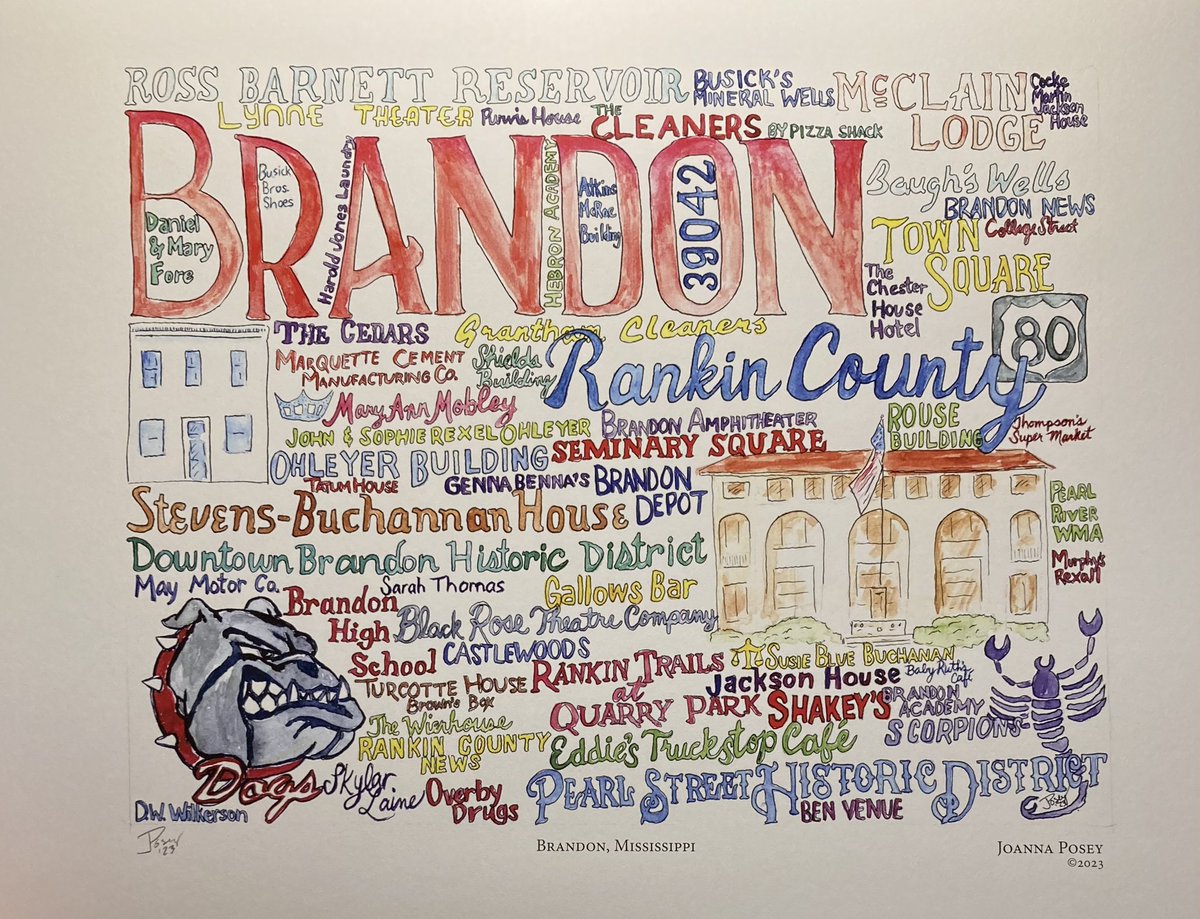 ROSS BARNETT RESERVOIR
BUSICK'S
MINERAL WELLS
McCLAIN
LODGE
Cocke
Martin
Jackson
House
LYNNE THEATER
Purvis House
THE
CLEANERS
BY PIZZA SHACK
BRANDON
Daniel
& Mary
Fore
Busick
Bros.
Shoes
Harold Jones Laundry
HEBRON ACADEMY
Atkins
McRae
Building
39042
Baugh's Wells
BRANDON NEWS
TOWN
SQUARE
College Street
The
Chester
House
Hotel
80
THE CEDARS
Grantham Cleaners
MARQUETTE CEMENT
MANUFACTURING CO.
Shields
Building
Rankin County
Mary Ann Mobley
BRANDON AMPHITEATER
ROUSE
BUILDING
Thompson's
Super Market
JOHN & SOPHIE REXEL OHLEYER
SEMINARY SQUARE
OHLEYER BUILDING
TATUM HOUSE
GENNA BENNA'S
BRANDON
DEPOT
STEVENS-BUCHANNAN HOUSE
PEARL
RIVER
WMA
Downtown Brandon Historic District
Murphy's
Rexall
May Motor Co.
Sarah Thomas
Gallows Bar
Brandon
High
School
Black Rose Theatre Company
CASTLEWOODS
RANKIN TRAILS
at
QUARRY PARK
SUSIE BLUE BUCHANAN
Baby Ruth's
Café
Jackson House
TURCOTTE HOUSE
Brown's Box
SHAKEY'S
BRANDON
ACADEMY
SCORPIONS
The Wierhouse
RANKIN COUNTY
NEWS
Eddie's Truckstop Café
Dawgs
Skylar
Laine
Overby
Drugs
PEARL STREET HISTORIC DISTRICT
BEN VENUE
D.W. Wilkerson
Posey
Posey
'23
BRANDON, MISSISSIPPI
JOANNA POSEY
©2023